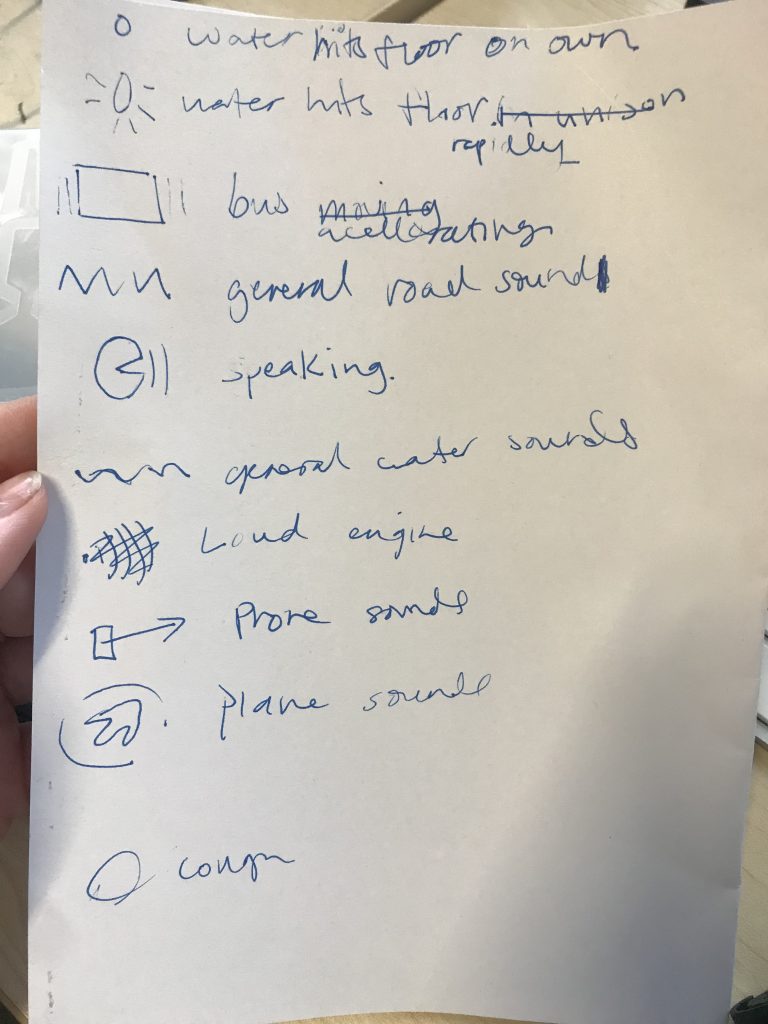 water hits floor on own
water hits floor. in unison
rapidly
bus moving
accellorating
general road sound
speaking.
general water sounds
Loud engine
Phone sounds
plane sounds
cough